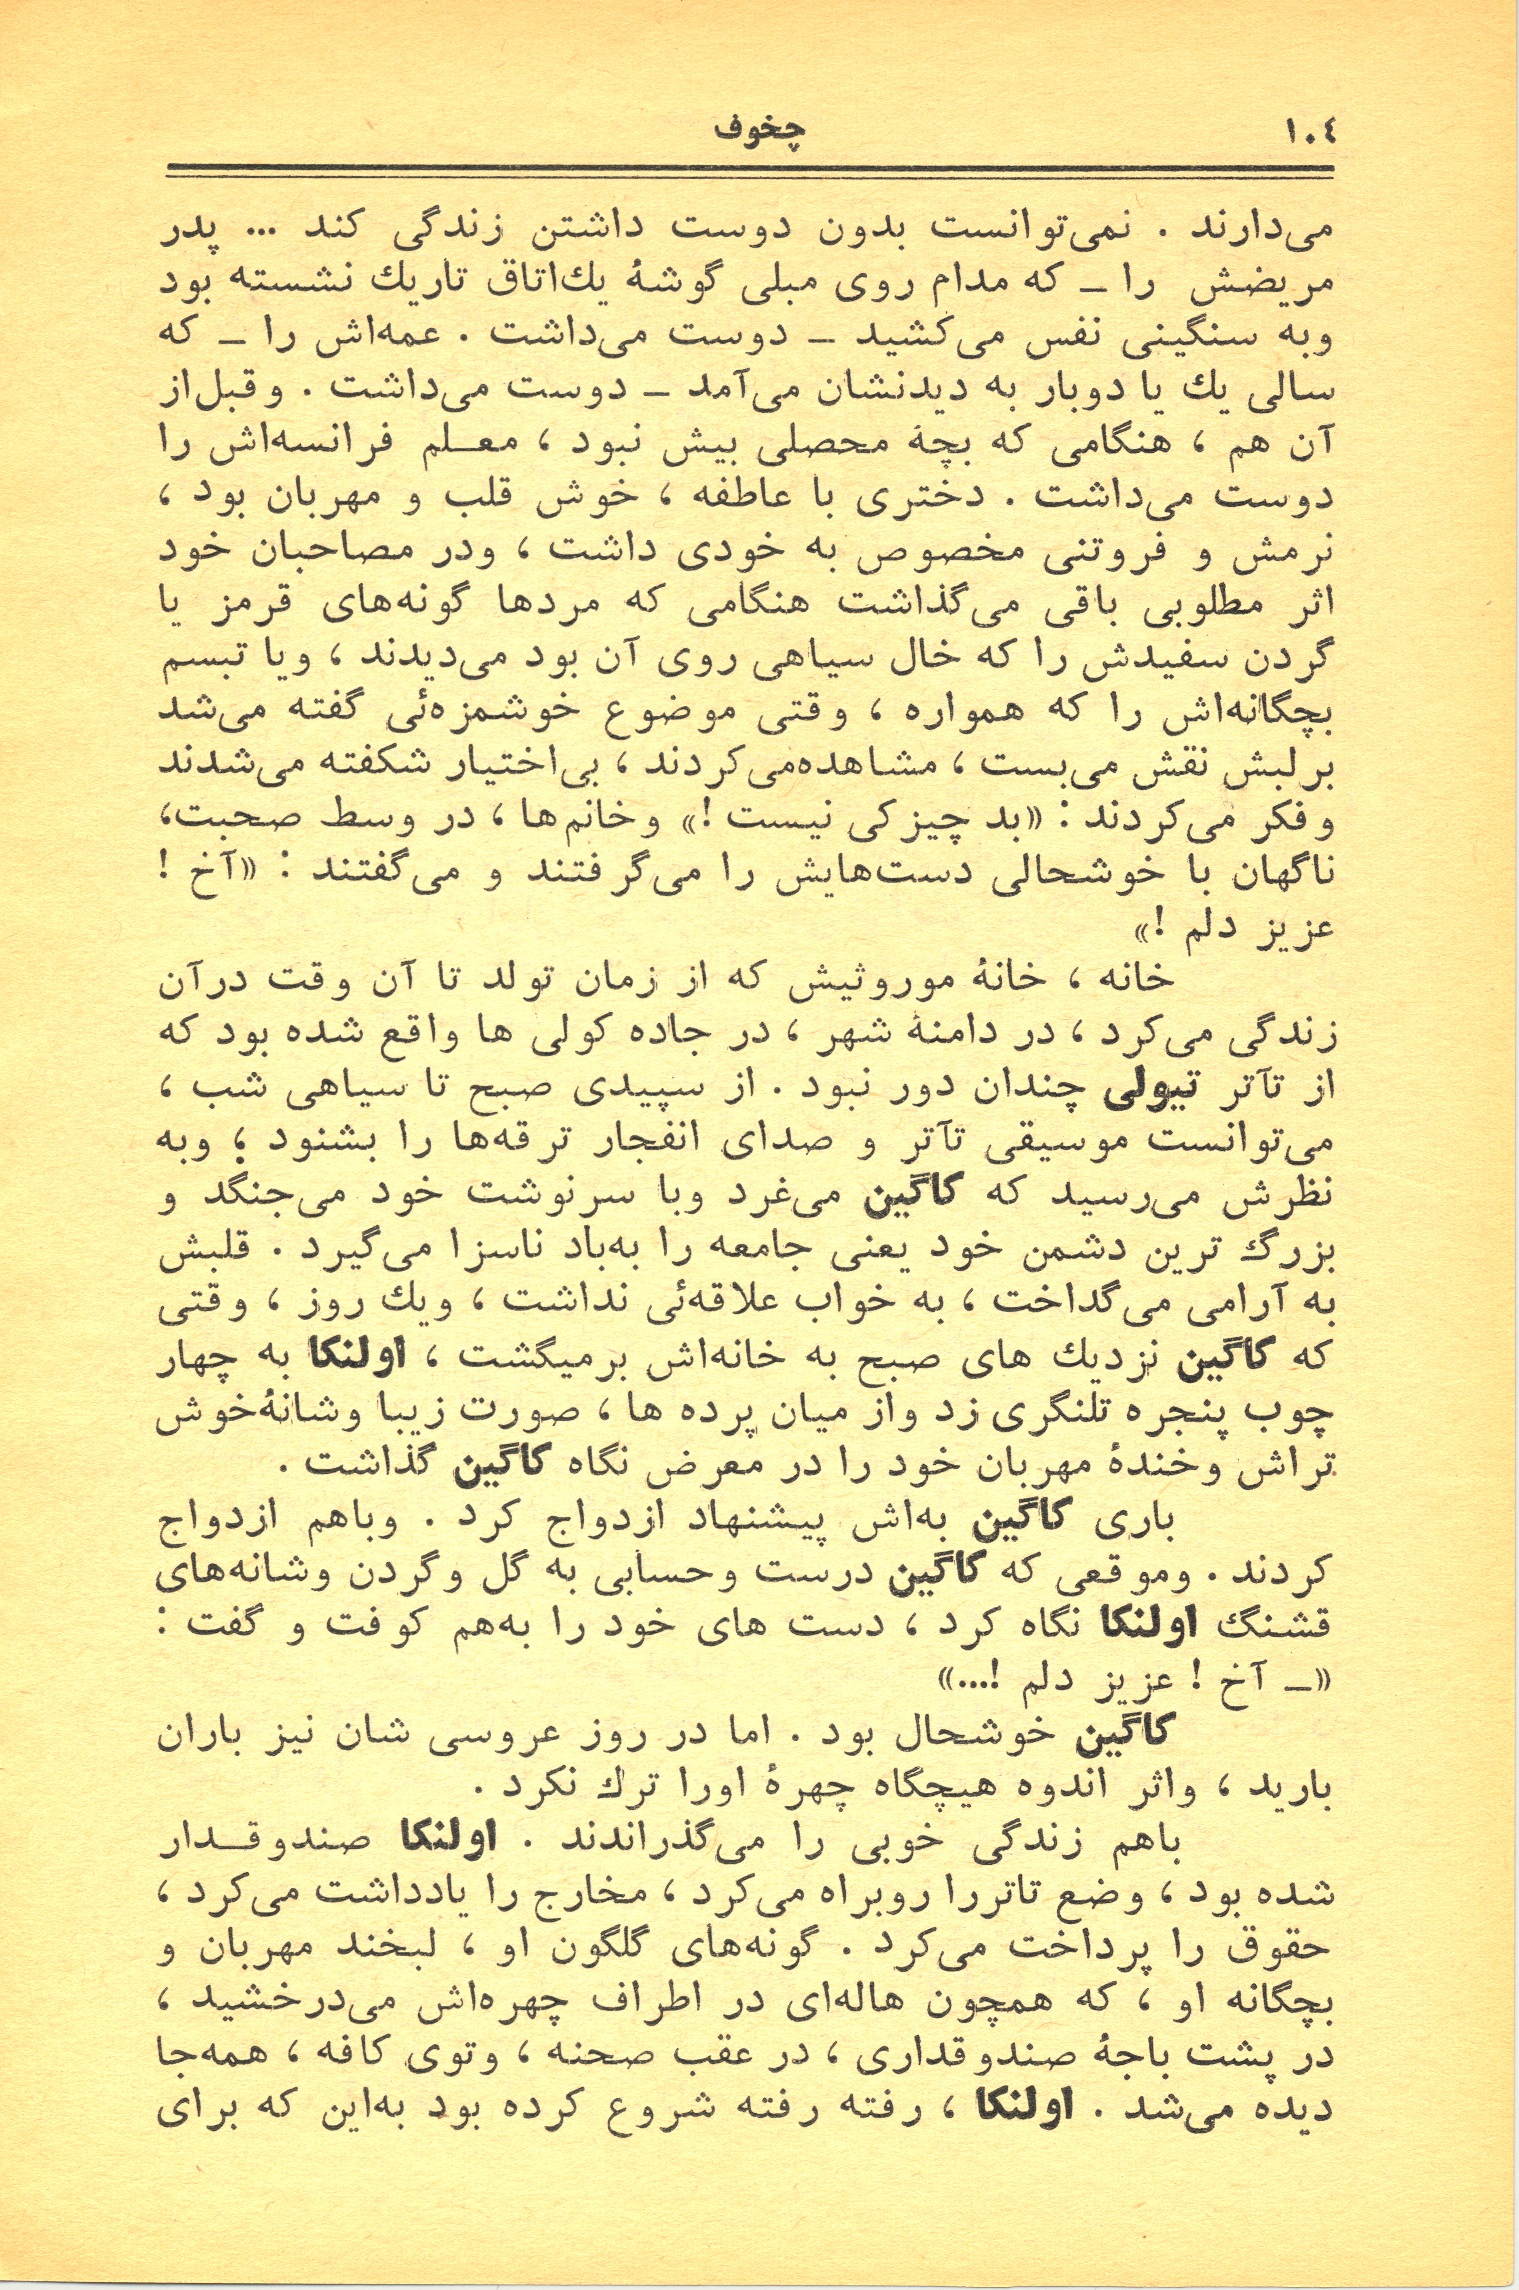 ۱۰٤ چخوف
می‌دارند . نمی‌توانست بدون دوست داشتن زندگی کند ... پدر
مریضش را ـ که مدام روی مبلی گوشهٔ یك‌اتاق تاریك نشسته بود
وبه سنگینی نفس می‌کشید ـ دوست می‌داشت . عمه‌اش را ـ که
سالی یك یا دوبار به دیدنشان می‌آمد ـ دوست می‌داشت . وقبل‌از
آن هم ، هنگامی که بچهٔ محصلی بیش نبود ، معـلم فرانسه‌اش را
دوست می‌داشت . دختری با عاطفه ، خوش قلب و مهربان بود ،
نرمش و فروتنی مخصوص به خودی داشت ، ودر مصاحبان خود
اثر مطلوبی باقی می‌گذاشت هنگامی که مردها گونه‌های قرمز یا
گردن سفیدش را که خال سیاهی روی آن بود می‌دیدند ، ویا تبسم
بچگانه‌اش را که همواره ، وقتی موضوع خوشمزه‌ئی گفته می‌شد
برلبش نقش می‌بست ، مشاهده‌می‌کردند ، بی‌اختیار شکفته می‌شدند
وفکر می‌کردند : «بد چیزکی نیست !» وخانم‌ها ، در وسط صحبت،
ناگهان با خوشحالی دست‌هایش را می‌گرفتند و می‌گفتند : «آخ !
عزیز دلم !»
خانه ، خانهٔ موروثیش که از زمان تولد تا آن وقت درآن
زندگی می‌کرد ، در دامنهٔ شهر ، در جاده کولی ها واقع شده بود که
از تآتر تیولی چندان دور نبود . از سپیدی صبح تا سیاهی شب ،
می‌توانست موسیقی تآتر و صدای انفجار ترقه‌ها را بشنود ؛ وبه
نظرش می‌رسید که کاگین می‌غرد وبا سرنوشت خود می‌جنگد و
بزرگ ترین دشمن خود یعنی جامعه را به‌باد ناسزا می‌گیرد . قلبش
به آرامی می‌گداخت ، به خواب علاقه‌ئی نداشت ، ویك روز ، وقتی
که کاگین نزدیك های صبح به خانه‌اش برمیگشت ، اولنکا به چهار
چوب پنجره تلنگری زد واز میان پرده ها ، صورت زیبا وشانهٔ‌خوش
تراش وخندهٔ مهربان خود را در معرض نگاه کاگین گذاشت .
باری کاگین به‌اش پیشنهاد ازدواج کرد . وباهم ازدواج
کردند . وموقعی که کاگین درست وحسابی به گل وگردن وشانه‌های
قشنگ اولنکا نگاه کرد ، دست های خود را به‌هم کوفت و گفت :
«ـ آخ ! عزیز دلم !...»
کاگین خوشحال بود . اما در روز عروسی شان نیز باران
بارید ، واثر اندوه هیچگاه چهرهٔ اورا ترك نکرد .
باهم زندگی خوبی را می‌گذراندند . اولنکا صندوقـدار
شده بود ، وضع تاتررا روبراه می‌کرد ، مخارج را یادداشت می‌کرد ،
حقوق را پرداخت می‌کرد . گونه‌های گلگون او ، لبخند مهربان و
بچگانه او ، که همچون هاله‌ای در اطراف چهره‌اش می‌درخشید ،
در پشت باجهٔ صندوقداری ، در عقب صحنه ، وتوی کافه ، همه‌جا
دیده می‌شد . اولنکا ، رفته رفته شروع کرده بود به‌این که برای